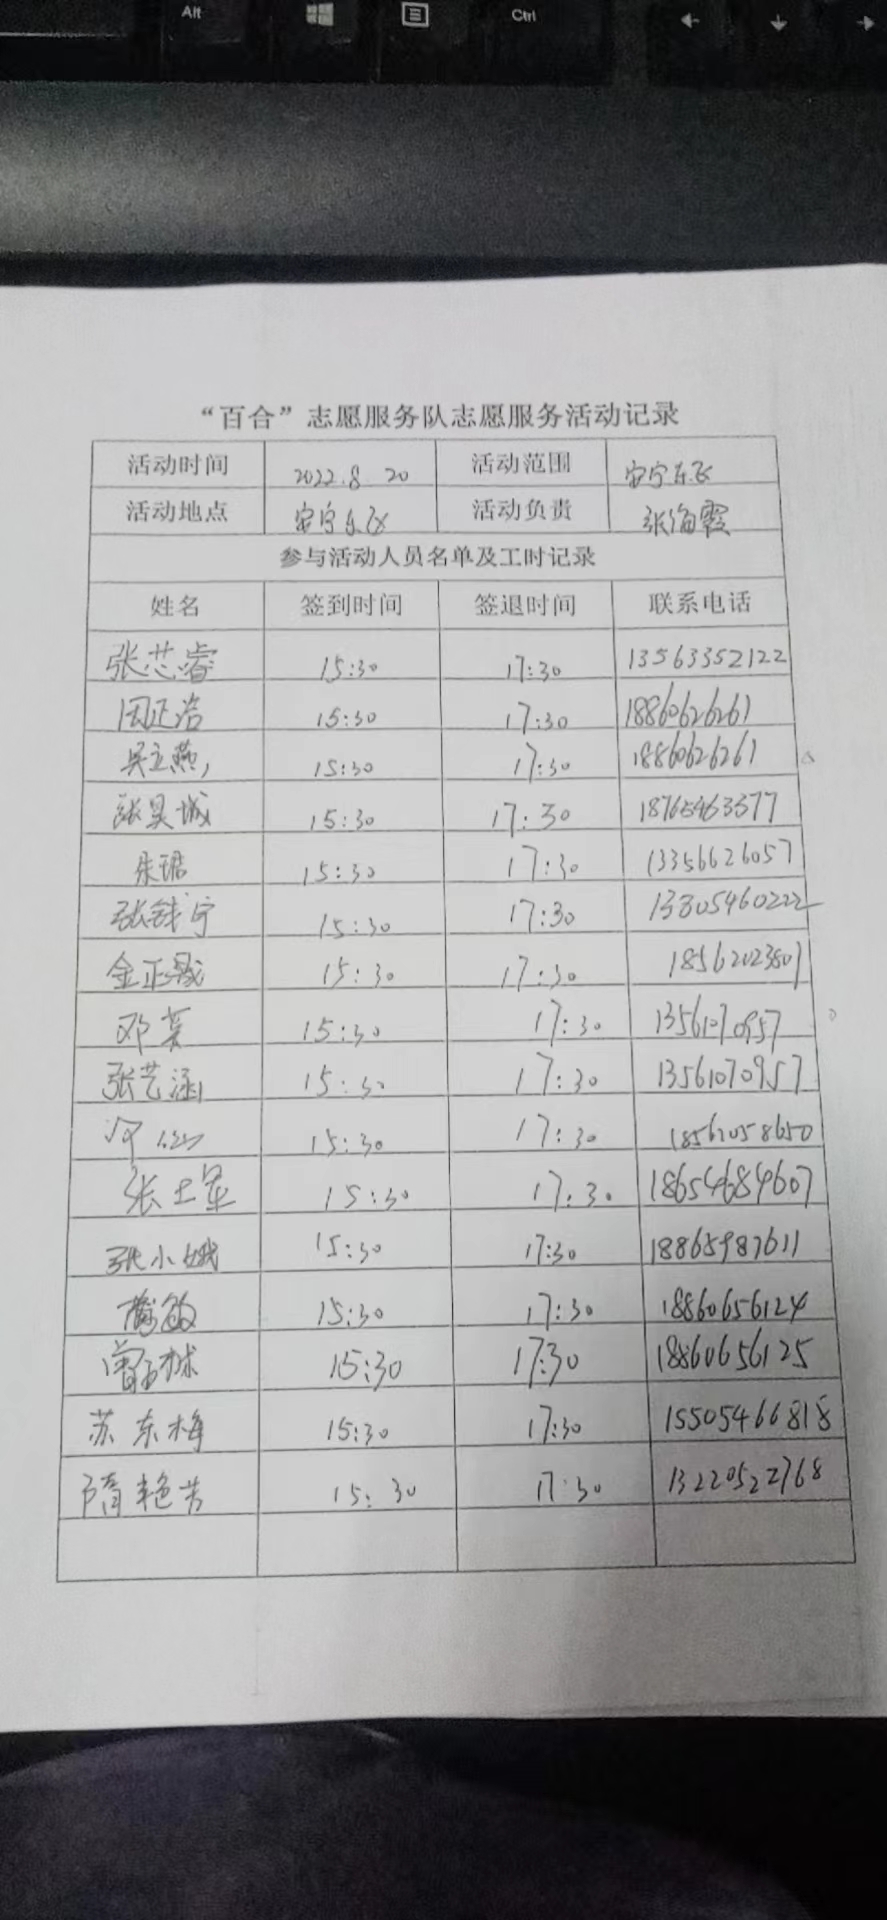 Alt Ctrl
“百合”志愿服务队志愿服务活动记录
活动时间 2022.8.20 活动范围 安宁东飞
活动地点 安宁东飞 活动负责 张海霞
参与活动人员名单及工时记录
姓名 签到时间 签退时间 联系电话
张芯睿 15:30 17:30 13563352122
田正浩 15:30 17:30 18860626261
吴立燕 15:30 17:30 18860626261
张昊城 15:30 17:30 18765463577
朱珺 15:30 17:30 13356626057
张钱宁 15:30 17:30 13305460222
金正晟 15:30 17:30 18562023807
邓蕓 15:30 17:30 13561070957
张艺涵 15:30 17:30 13561070957
15:30 17:30 18562058650
张士星 15:30 17:30 18654684607
张小娥 15:30 17:30 18865987611
15:30 17:30 18860656124
曾玉林 15:30 17:30 18860656125
苏东梅 15:30 17:30 15505466818
隋艳芳 15:30 17:30 13220522768